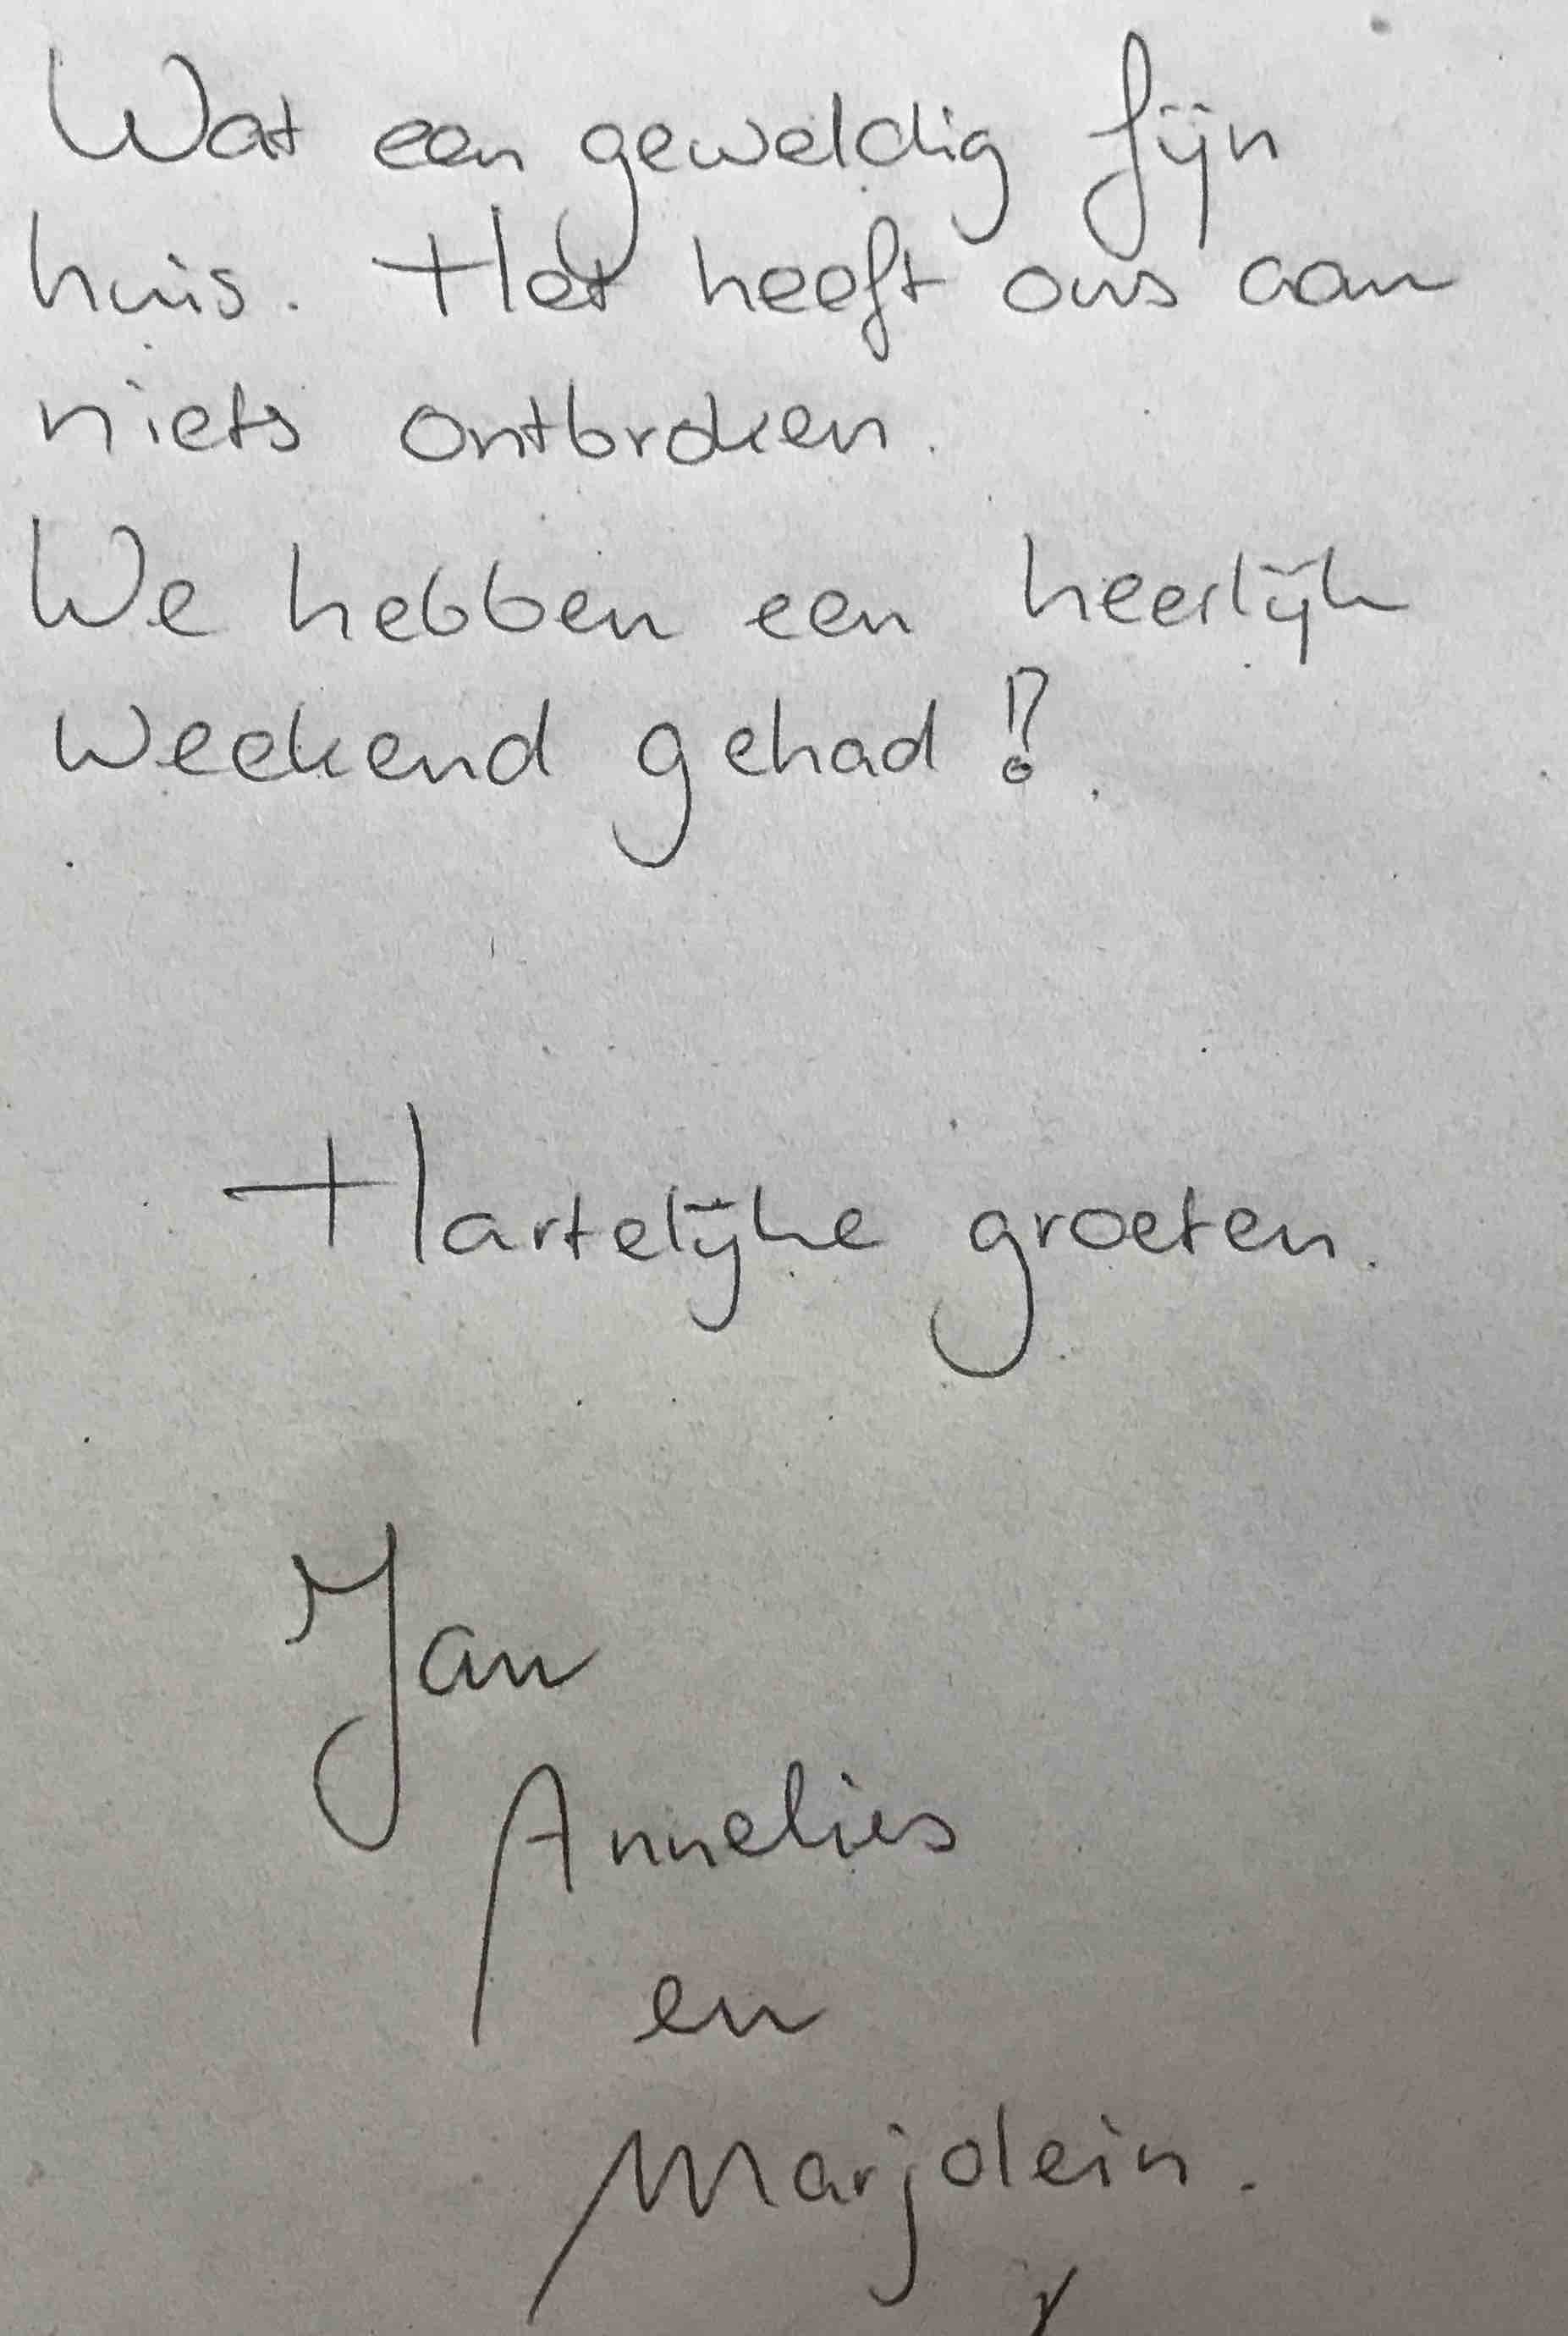 Wat een geweldig fijn
huis. Het heeft ons aan
niets ontbroken.
We hebben een heerlijk
weekend gehad!
Hartelijke groeten.
Jan
Annelies
en
Marjolein.